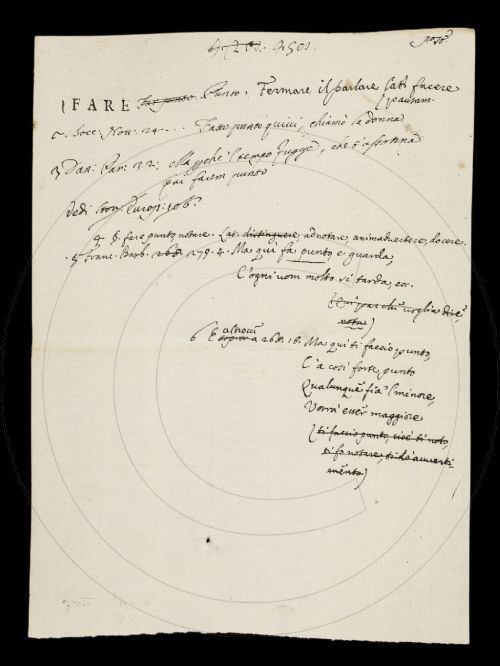 FARE far punto. Punto. Fermare il parlare lat: facere
pausam.
Bocc: Nov: 24. Fatto punto quivi, chiamò la donna
3 Dan: Par: 32: Ma perchè 'l tempo fugge, che t'assonna
Qui farem punto
Vedi Stor. Europ: 106.
4 §. fare punto, notare. Lat. distinguere, adnotare, animadvertere, docere.
5 Franc. Barb. 268. 279. 4. Ma qui fa punto, e guarda,
C'ogni uom molto si tarda, ec.
notar)
6 E altrove sopra a 268. 18. Ma qui ti faccio punto,
C'à così forte punto
Qualunque sia 'l minore,
Vorrà esser maggiore
(ti faccio punto, cioè ti noto,
ti fo notare, ti do avverti-
mento)